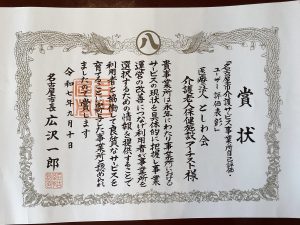 八
賞状
「名古屋市介護サービス事業所自己評価・
ユーザー評価表彰」
医療法人としわ会
介護老人保健施設 様
貴事業所は永年にわたり事業所における
サービスの現状を具体的に把握し事業
運営の改善につなげ利用者が事業所を
選択するための情報を提供することで
利用者と協働して良質なサービスを
育てることに
ましたので賞します
令和七年九月十日
名古屋市長 広沢一郎